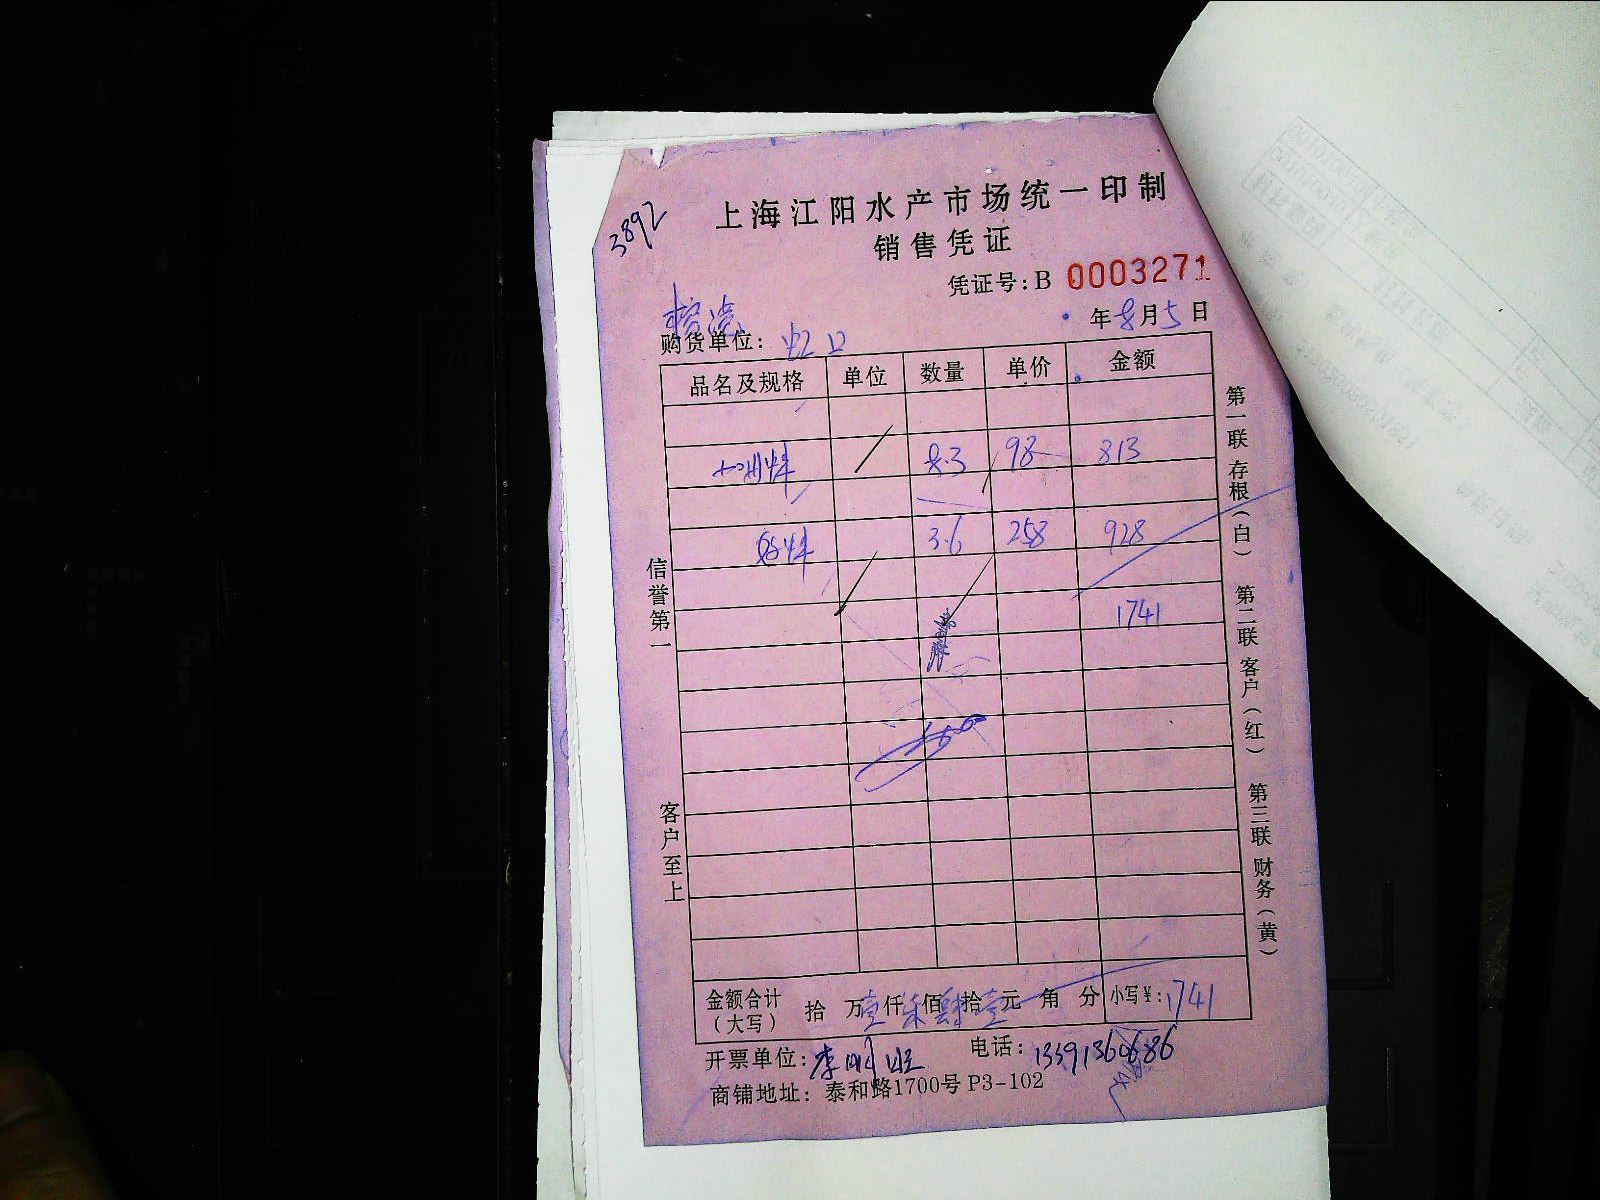 3892
上海江阳水产市场统一印制
销售凭证
凭证号:B 0003271
年8月5日
购货单位: 虹口
品名及规格 单位 数量 单价 金额
8.3 98 813
3.6 258 928
1741
信誉第一
客户至上
第一联 存根(白) 第二联 客户(红) 第三联 财务(黄)
金额合计(大写) 拾 万壹仟柒佰肆拾壹元 角 分 小写¥:1741
开票单位: 电话:13391360686
商铺地址: 泰和路1700号 P3-102